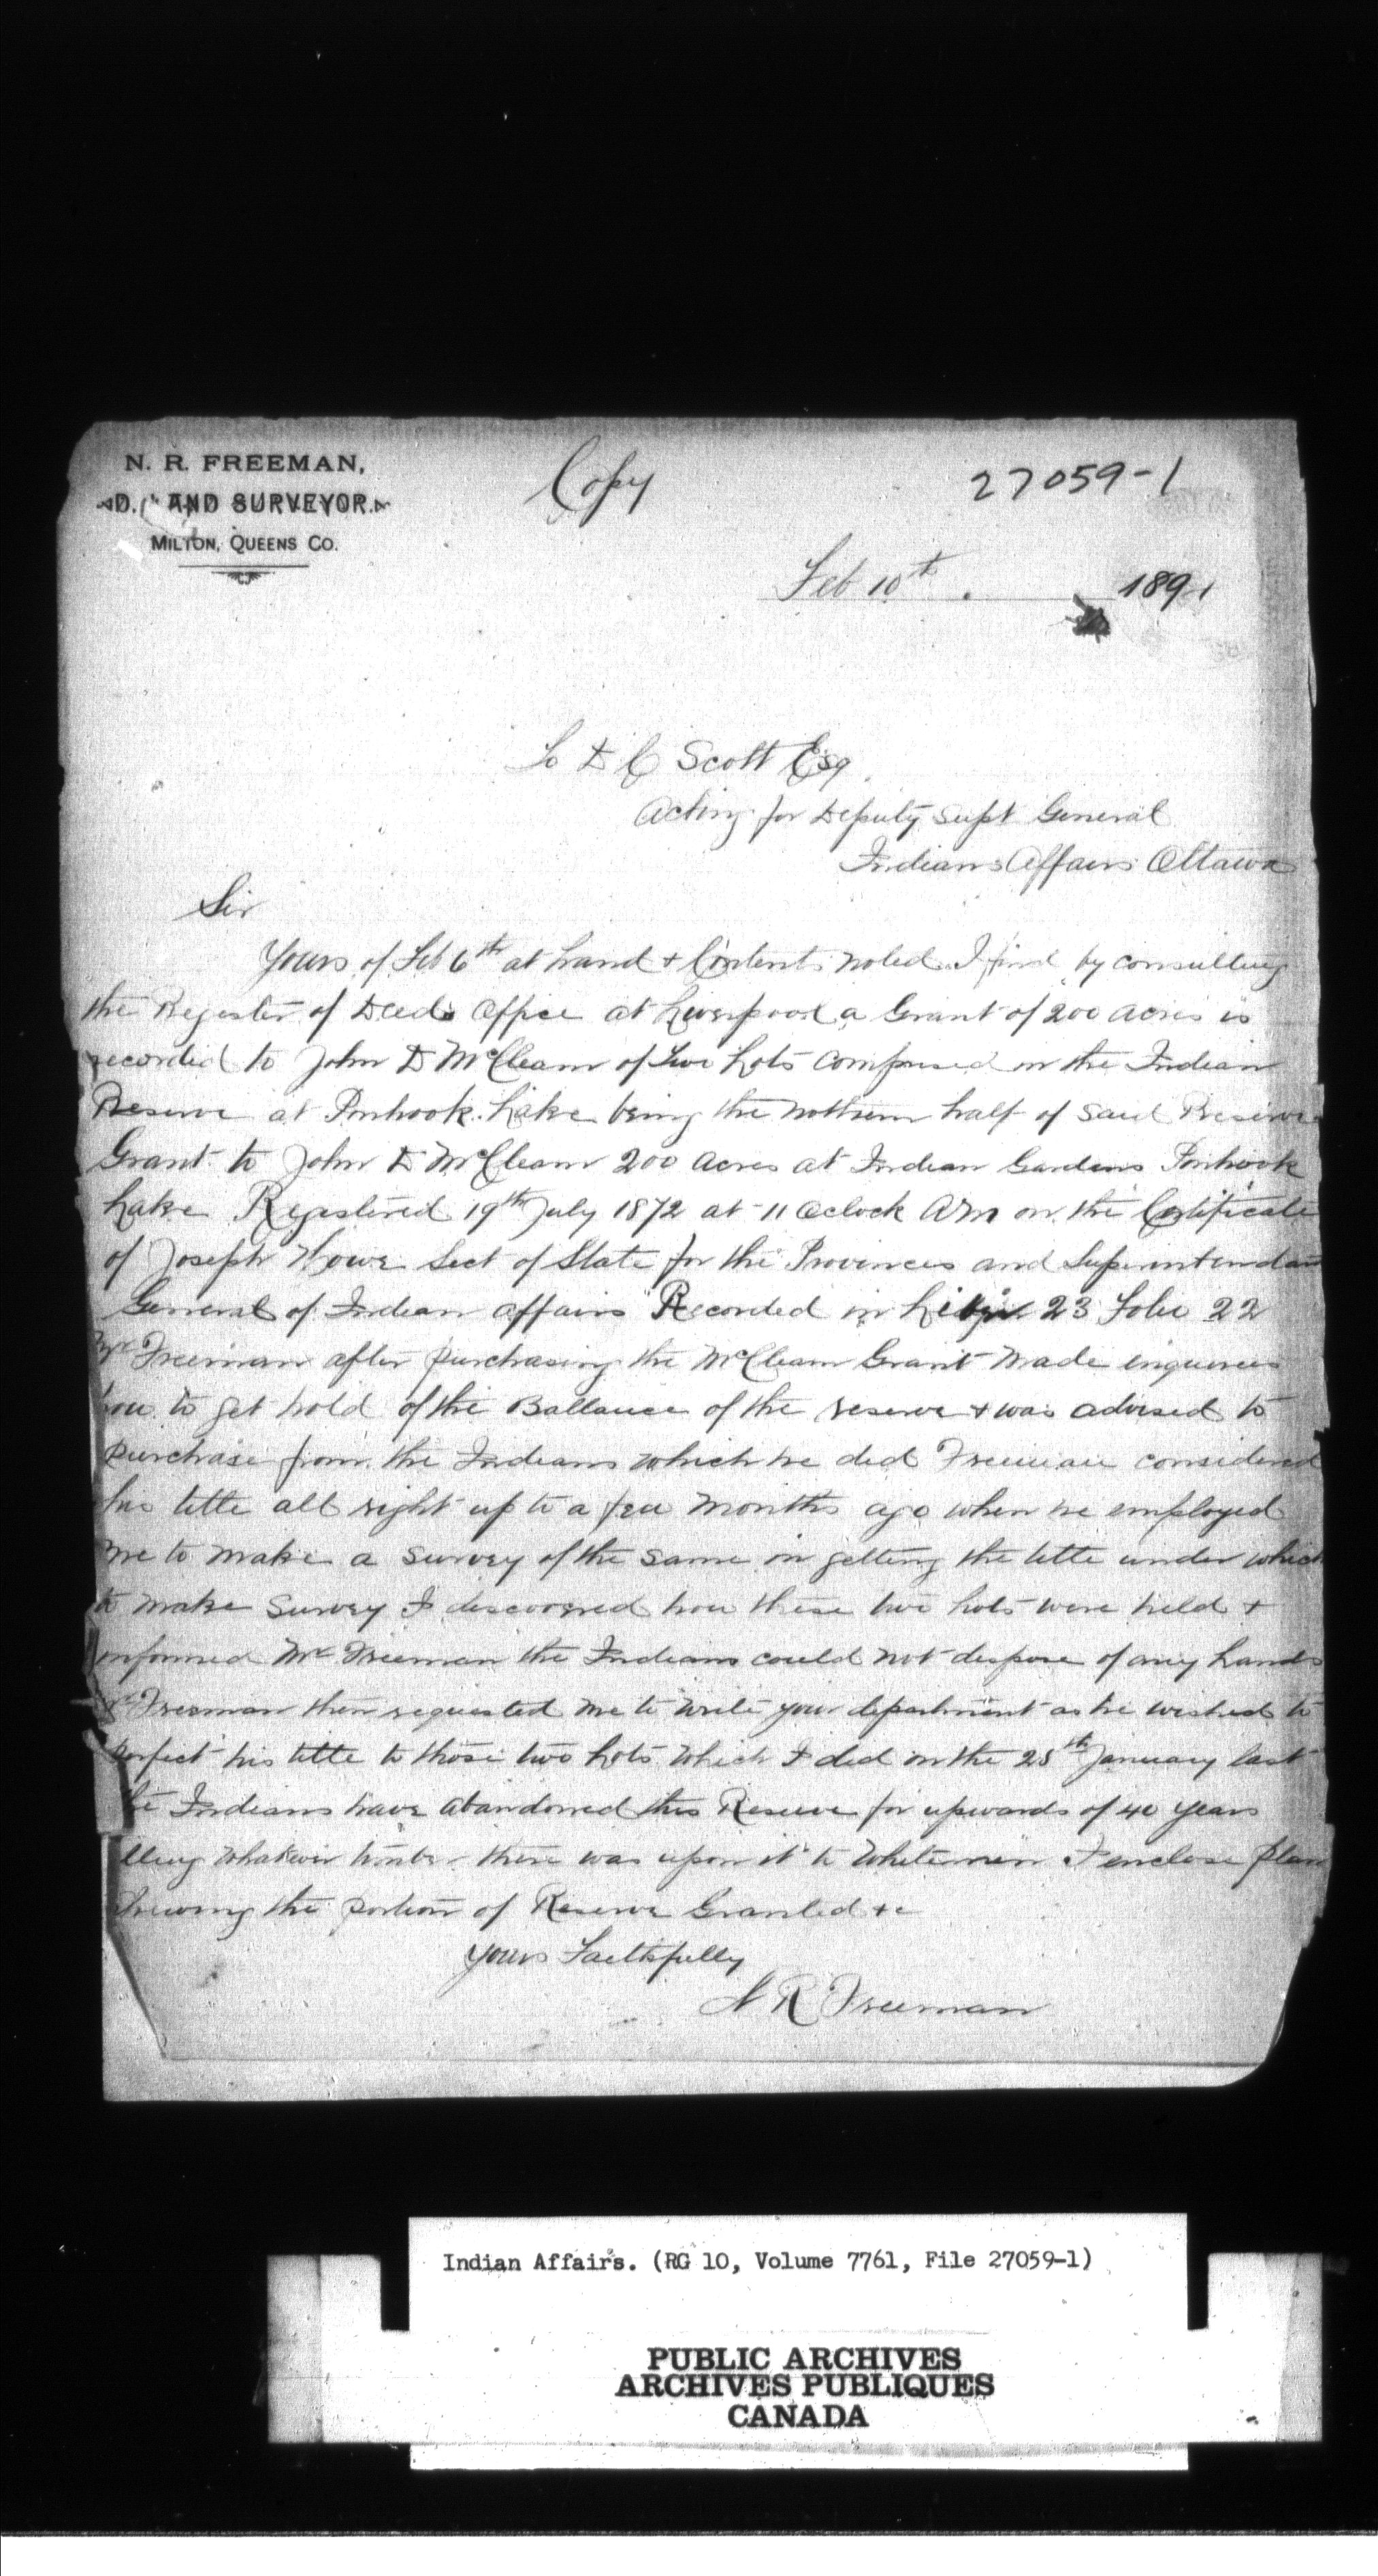 N. R. FREEMAN,
D. LAND SURVEYOR.
MILTON, QUEENS CO.
Copy
27059-1
Feb 10th 1891
To D C Scott Esq
Acting for Deputy Supt General
Indians Affairs Ottawa
Sir
Yours of Feb 6th at hand & Contents noted. I find by consulting
the Register of Deeds Office at Liverpool a Grant of 200 acres is
recorded to John D McCleam of Two Lots comprised in the Indian
Reserve at Ponhook Lake being the nothern half of said Reserve
Grant to John D McCleam 200 acres at Indian Gardens Ponhook
Lake Registered 19th July 1872 at 11 Oclock AM on the Certificate
of Joseph Howe Sect of State for the Provinces and Superintendan
General of Indian affairs Recorded in 23 Folio 22
Mr Freeman after purchasing the McCleam Grant made inquires
how to get hold of the Ballance of the reserve & was advised to
purchase from the Indians which he did Freeman considered
his title all right up to a few months ago when he employed
me to make a survey of the same in getting the title under which
to make Survey I discovered how these two Lots were held &
informed Mr Freeman the Indians could not dispose of any Lands
Mr Freeman then requested me to write your department as he wished to
perfect his title to those two Lots which I did on the 25th January last
the Indians have abandoned this Reserve for upwards of 40 years
lling whatever timber there was upon it to whitemen I enclose plan
shewing the portion of Reserve Granted &c
Yours Faithfully
N R Freeman
Indian Affairs. (RG 10, Volume 7761, File 27059-1)
PUBLIC ARCHIVES
ARCHIVES PUBLIQUES
CANADA